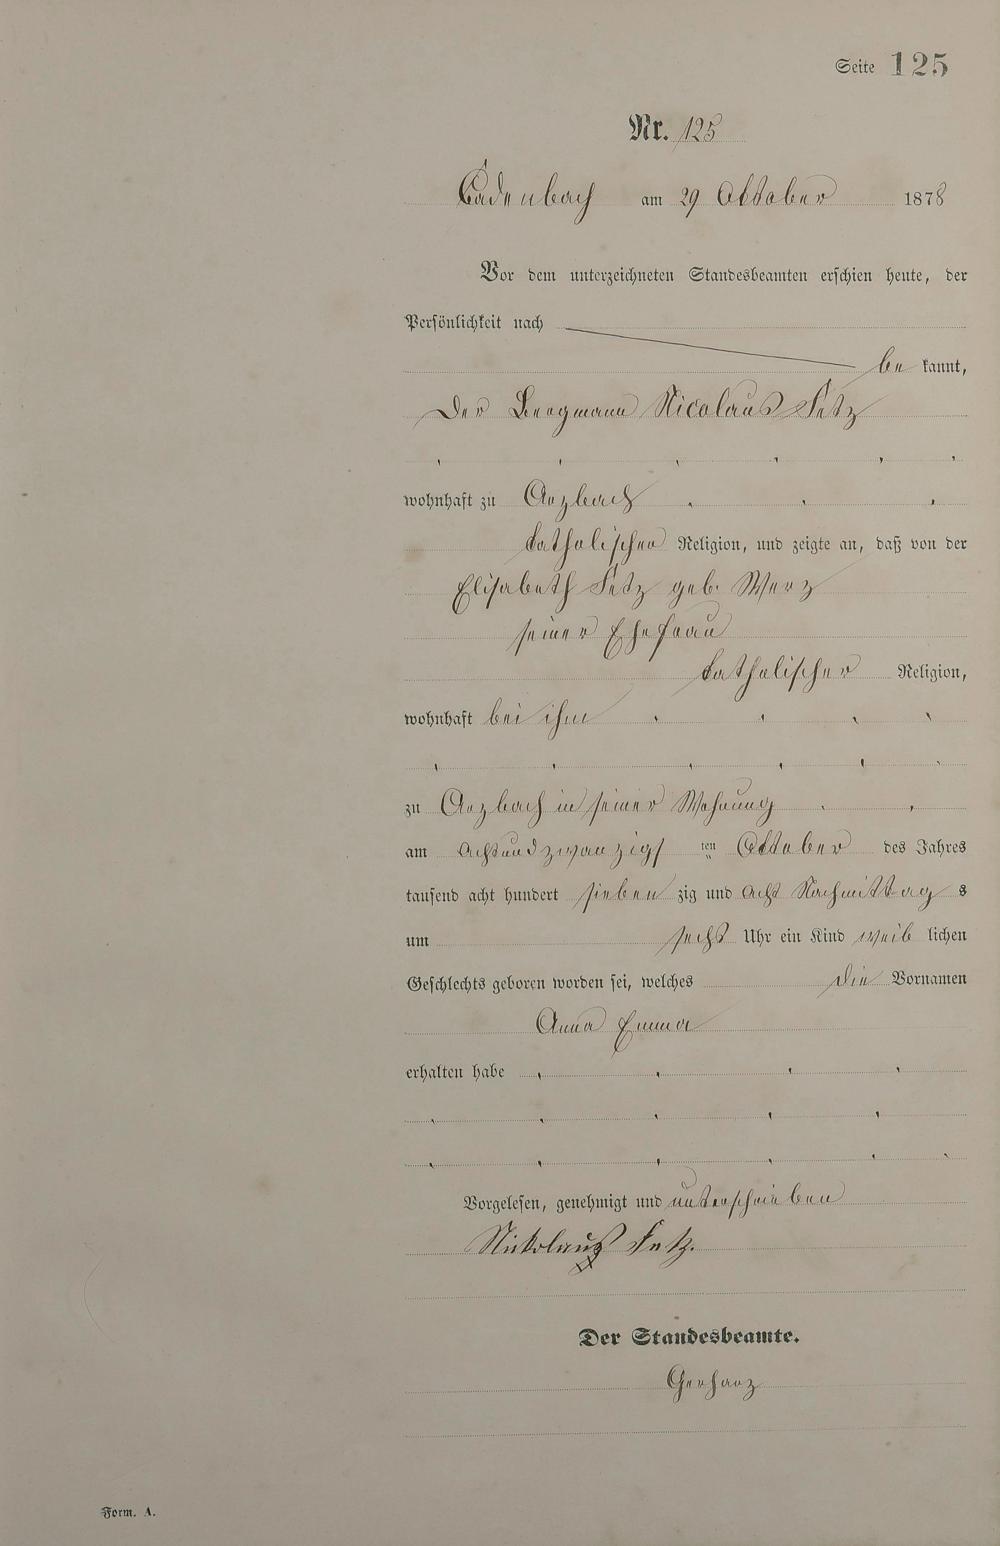 Seite 125
Nr. 125
Cadenbach am 29 Oktober 1878
Vor dem unterzeichneten Standesbeamten erschien heute, der
Persönlichkeit nach
be kannt,
Der Bergmann Nicolaus Fetz
wohnhaft zu Arzbach
katholischer Religion, und zeigte an, daß von der
Elisabeth Fetz geb. Werz
seiner Ehefrau
katholischer Religion,
wohnhaft bei ihm
zu Arzbach in seiner Wohnung
am achtundzwanzigs ten Oktober des Jahres
tausend acht hundert sieben zig und acht Nachmittag s
um sechs Uhr ein Kind weib lichen
Geschlechts geboren worden sei, welches die Vornamen
Anna Emma
erhalten habe
Vorgelesen, genehmigt und unterschrieben
Nikolaus Fetz.
Der Standesbeamte.
Gerharz
Form. A.